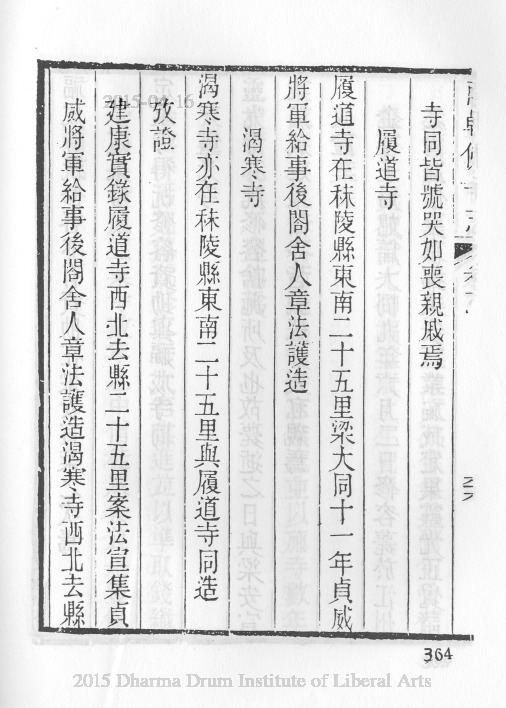 寺同皆號哭如喪親戚焉
履道寺
履道寺在秣陵縣東南二十五里梁大同十一年貞威
將軍給事後閤舍人章法護造
渴寒寺
渴寒寺亦在秣陵縣東南二十五里與履道寺同造
攷證
建康實錄履道寺西北去縣二十五里案法宣集貞
威將軍給事後閤舍人章法護造渴寒寺西北去縣
364
2015 Dharma Drum Institute of Liberal Arts